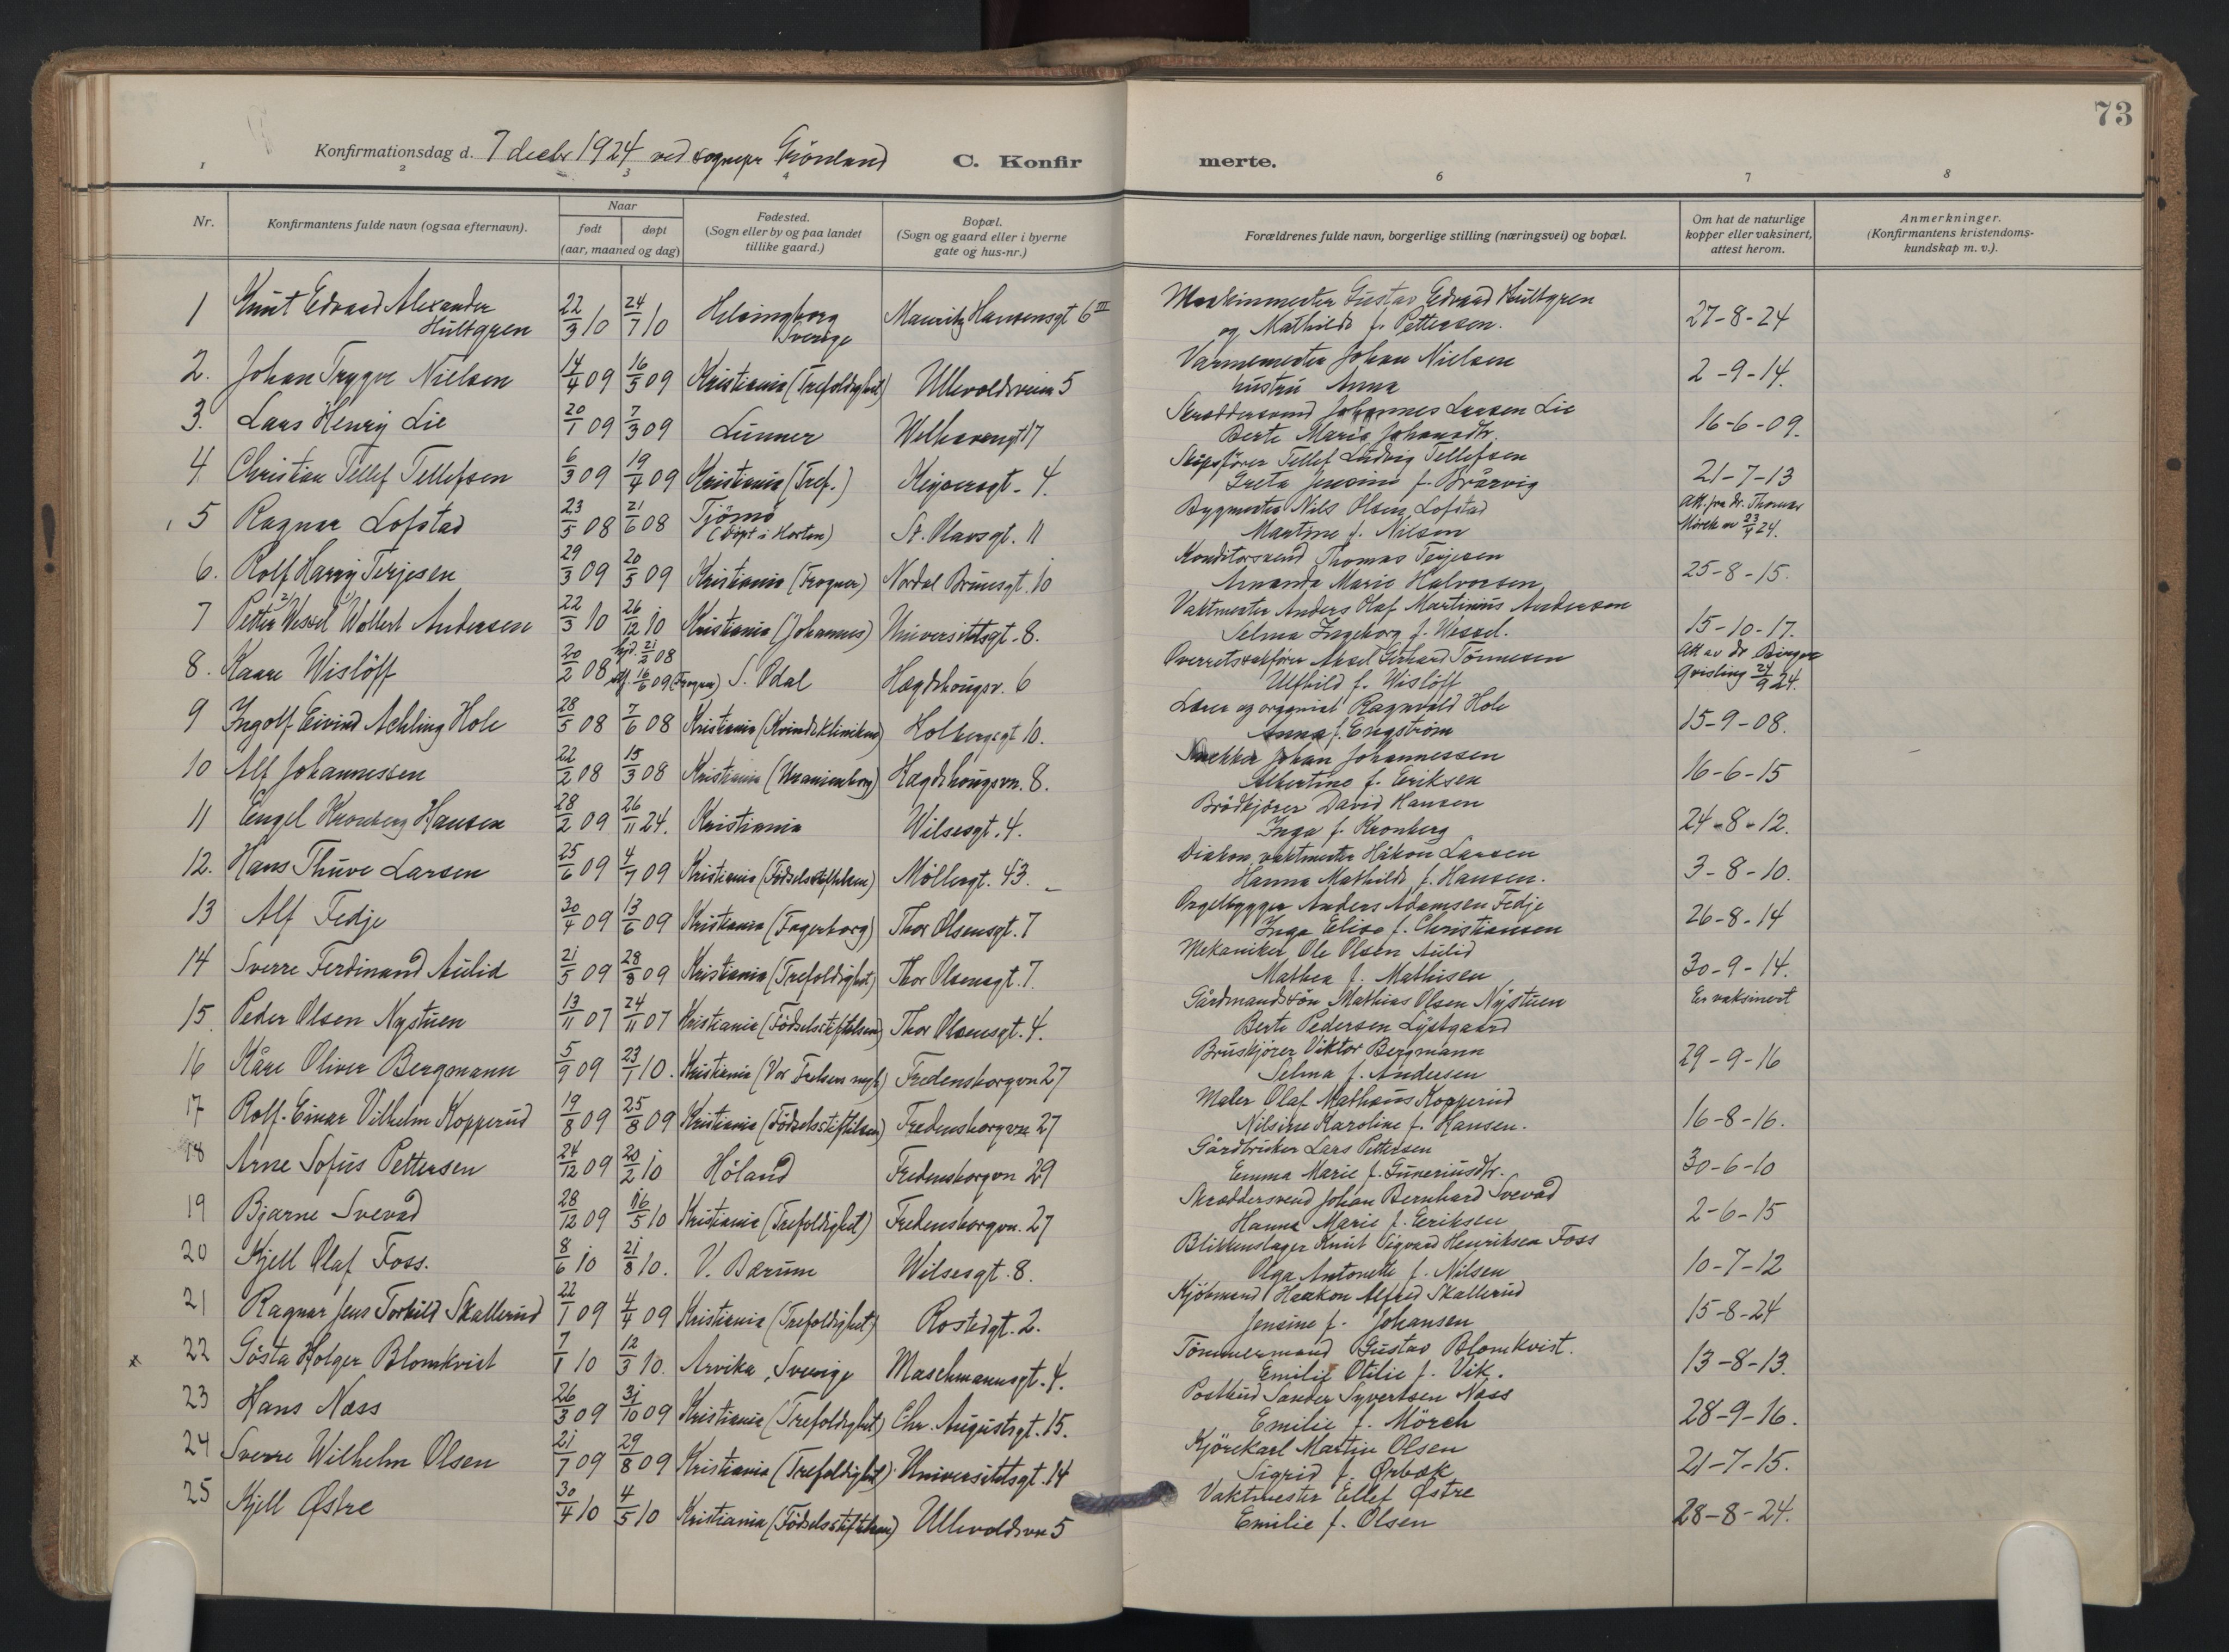 73
Konfirmationsdag d. 7 decbr 1924 ved sognepr Grönland
C. Konfirmerte.
1 2 3 4 6 7 8
Nr. Konfirmantens fulde navn (ogsaa efternavn). Naar født døpt (aar, maaned og dag) Fødested. (Sogn eller by og paa landet tillike gaard.) Bopæl. (Sogn og gaard eller i byerne gate og hus-nr.) Forældrenes fulde navn, borgerlige stilling (næringsvei) og bopæl. Om hat de naturlige kopper eller vaksinert, attest herom. Anmerkninger. (Konfirmantens kristendoms-kundskap m. v.).
1 Knut Edvard Alexander Hultgren 22/3 10 24/7 10 Helsingborg Sverige Mauritz Hansensgt 6 III Maskinmester Gustav Edvard Hultgren og Mathilde f. Pettersen. 27-8-24
2. Johan Trygve Nielsen 14/4 09 16/5 09 Kristiania (Trefoldighet) Ullevoldsveien 5 Varmemester Johan Nielsen hustru Anna 2-9-14.
3. Lars Henry Lie 20/1 09 7/3 09 Lunner Welhavensgt 17 Skræddersvend Johannes Larsen Lie Berte Marie Johansdtr. 16-6-09.
4. Christian Tellef Tellefsen 6/3 09 19/4 09 Kristiania (Tref.) Keysersgt. 4. Skipsfører Tellef Ludvig Tellefsen Greta Jensine f. Brårvig 21-7-13
5 Ragnar Lofstad 23/5 08 21/6 08 Tjömö (döpt i Horten) St. Olavsgt. 11 Bygmester Nils Olsen Lofstad Martine f. Nilsen Att. fra dr. Thomas Mörch av 23/9 24.
6. Rolf Harry Terjesen 29/3 09 20/5 09 Kristiania (Frogner) Nordal Brunsgt. 10 Konditorsvend Thomas Terjesen Amanda Marie Halvorsen 25-8-15.
7 Petter 2) Wessel 1) Wollert Andersen 22/3 10 26/12 10 Kristiania (Johannes) Universitetsgt. 8. Vaktmester Anders Olaf Martinius Andersen Selma Ingeborg f. Wessel. 15-10-17.
8. Kaare Wislöff 20/2 08 hjd. 21/2 08 stf. 16/6 09 (Frogner) S. Odal Hægdehougsv. 6 Overretssakfører Aksel Gerhard Tönnesen Ulfhild f. Wislöff Att av dr Birger Qvisling 24/9 24.
9 Ingolf Eivind Achling Hole 28/5 08 7/6 08 Kristiania (Kvindeklinikken) Holbergsgt 10. Lærer og organist Ragnvald Hole Anna f. Engström 15-9-08.
10 Alf Johannessen 22/2 08 15/3 08 Kristiania (Uranienborg) Hægdehougsvn. 8. Snekker Johan Johannessen Albertine f. Eriksen 16-6-15
11 Engel Kronberg Hansen 28/2 09 26/11 24. Kristiania Wilsesgt. 4. Brödkjörer David Hansen Inga f. Kronberg 24-8-12.
12. Hans Thuve Larsen 25/6 09 4/7 09 Kristiania (Födselsstiftelsen) Möllergt. 43. Diakon, vaktmester Håkon Larsen Hanna Mathilde f. Hansen. 3-8-10.
13 Alf Fedje 30/4 09 13/6 09 Kristiania (Fagerborg) Thor Olsensgt. 7 Orgelbygger Anders Adamsen Fedje Inga Elise f. Christiansen 26-8-14
14 Sverre Ferdinand Aulid 21/5 09 28/8 09 Kristiania (Trefoldighet) Thor Olsensgt. 7. Mekaniker Ole Olsen Aulid Mathea f. Mathisen 30-9-14.
15 Peder Olsen Nystuen 13/11 07 24/11 07 Kristiania (Födselsstiftelsen) Thor Olsensgt. 4. Gårdmandssön Mathias Olsen Nystuen Berte Pedersen Lystgaard Er vaksinert
16 Kåre Oliver Bergmann 5/9 09 23/1 10. Kristiania (Vor Frelsers mgh) Fredensborgvn 27 Bruskjörer Viktor Bergmann Selma f. Andersen 29-9-16
17 Rolf-Einar Vilhelm Kopperud 19/8 09 25/8 09 Kristiania (Födselsstiftelsen) Fredensborgvn 27 Maler Olaf Mathæus Kopperud Nilsine Karoline f. Hansen. 16-8-16.
18 Arne Sofus Pettersen 24/12 09 20/2 10 Höland Fredensborgvn 29 Gårdbruker Lars Pettersen Emma Marie f. Guneriusdtr. 30-6-10
19 Bjarne Svevad 28/12 09 16/5 10 Kristiania (Trefoldighet) Fredensborgvn. 27 Skræddersvend Johan Bernhard Svevad Hanna Marie f. Eriksen 2-6-15
20 Kjell Olaf Foss. 8/6 10 21/8 10. V. Bærum Wilsesgt. 8. Blikkenslager Knut Sigvard Henriksen Foss Olga Antonette f. Nilsen 10-7-12
21 Ragnar Jens Torkild Skallerud 22/1 09 4/4 09 Kristiania (Trefoldighet) Rostedgt. 2. Kjöbmand Haakon Alfred Skallerud Jensine f. Johansen 15-8-24
x 22 Gösta Holger Blomkvist 7/1 10 12/3 10. Arvika, Sverige Maschmannsgt. 4. Tömmermand Gustav Blomkvist. Emilie Otilie f. Vik. 13-8-13.
23 Hans Næss 26/3 09 31/10 09 Kristiania (Trefoldighet) Chr. Augustsgt. 15. Postbud Sander Syvertsen Næss Emilie f. Mörch 28-9-16.
24 Sverre Wilhelm Olsen 21/7 09 29/8 09 Kristiania (Trefoldighet) Universitetsgt. 14 Kjörekarl Martin Olsen Sigrid f. Ørbæk 21-7-15.
25 Kjell Østre 30/4 10 4/5 10 Kristiania (Födselsstiftelsen) Ullevoldsvn 5 Vaktmester Ellef Østre Emilie f. Olsen 28-8-24.